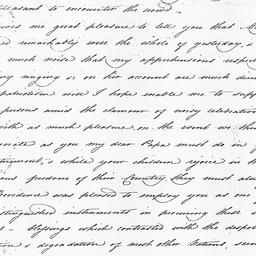 pleasant to encounter the crowd.
gives me great pleasure to tell you that
and remarkably well the whole of yesterday, &
much noise that my apprehensions respec
ing nursing &c on her account are much dimi
patriotism will I hope enable me to supp
persons amid the clamour of noisy celebration
with as much pleasure, on the event we thus
orate as you my dear Papa must do in y
tirement; & while your children rejoice in th
ous freedom of their Country, they must alw
Providence was pleased to employ you as one
stinguished instruments in procuring these
s. blessings which contrasted with the despot
on & degradation of most other Nations, seem